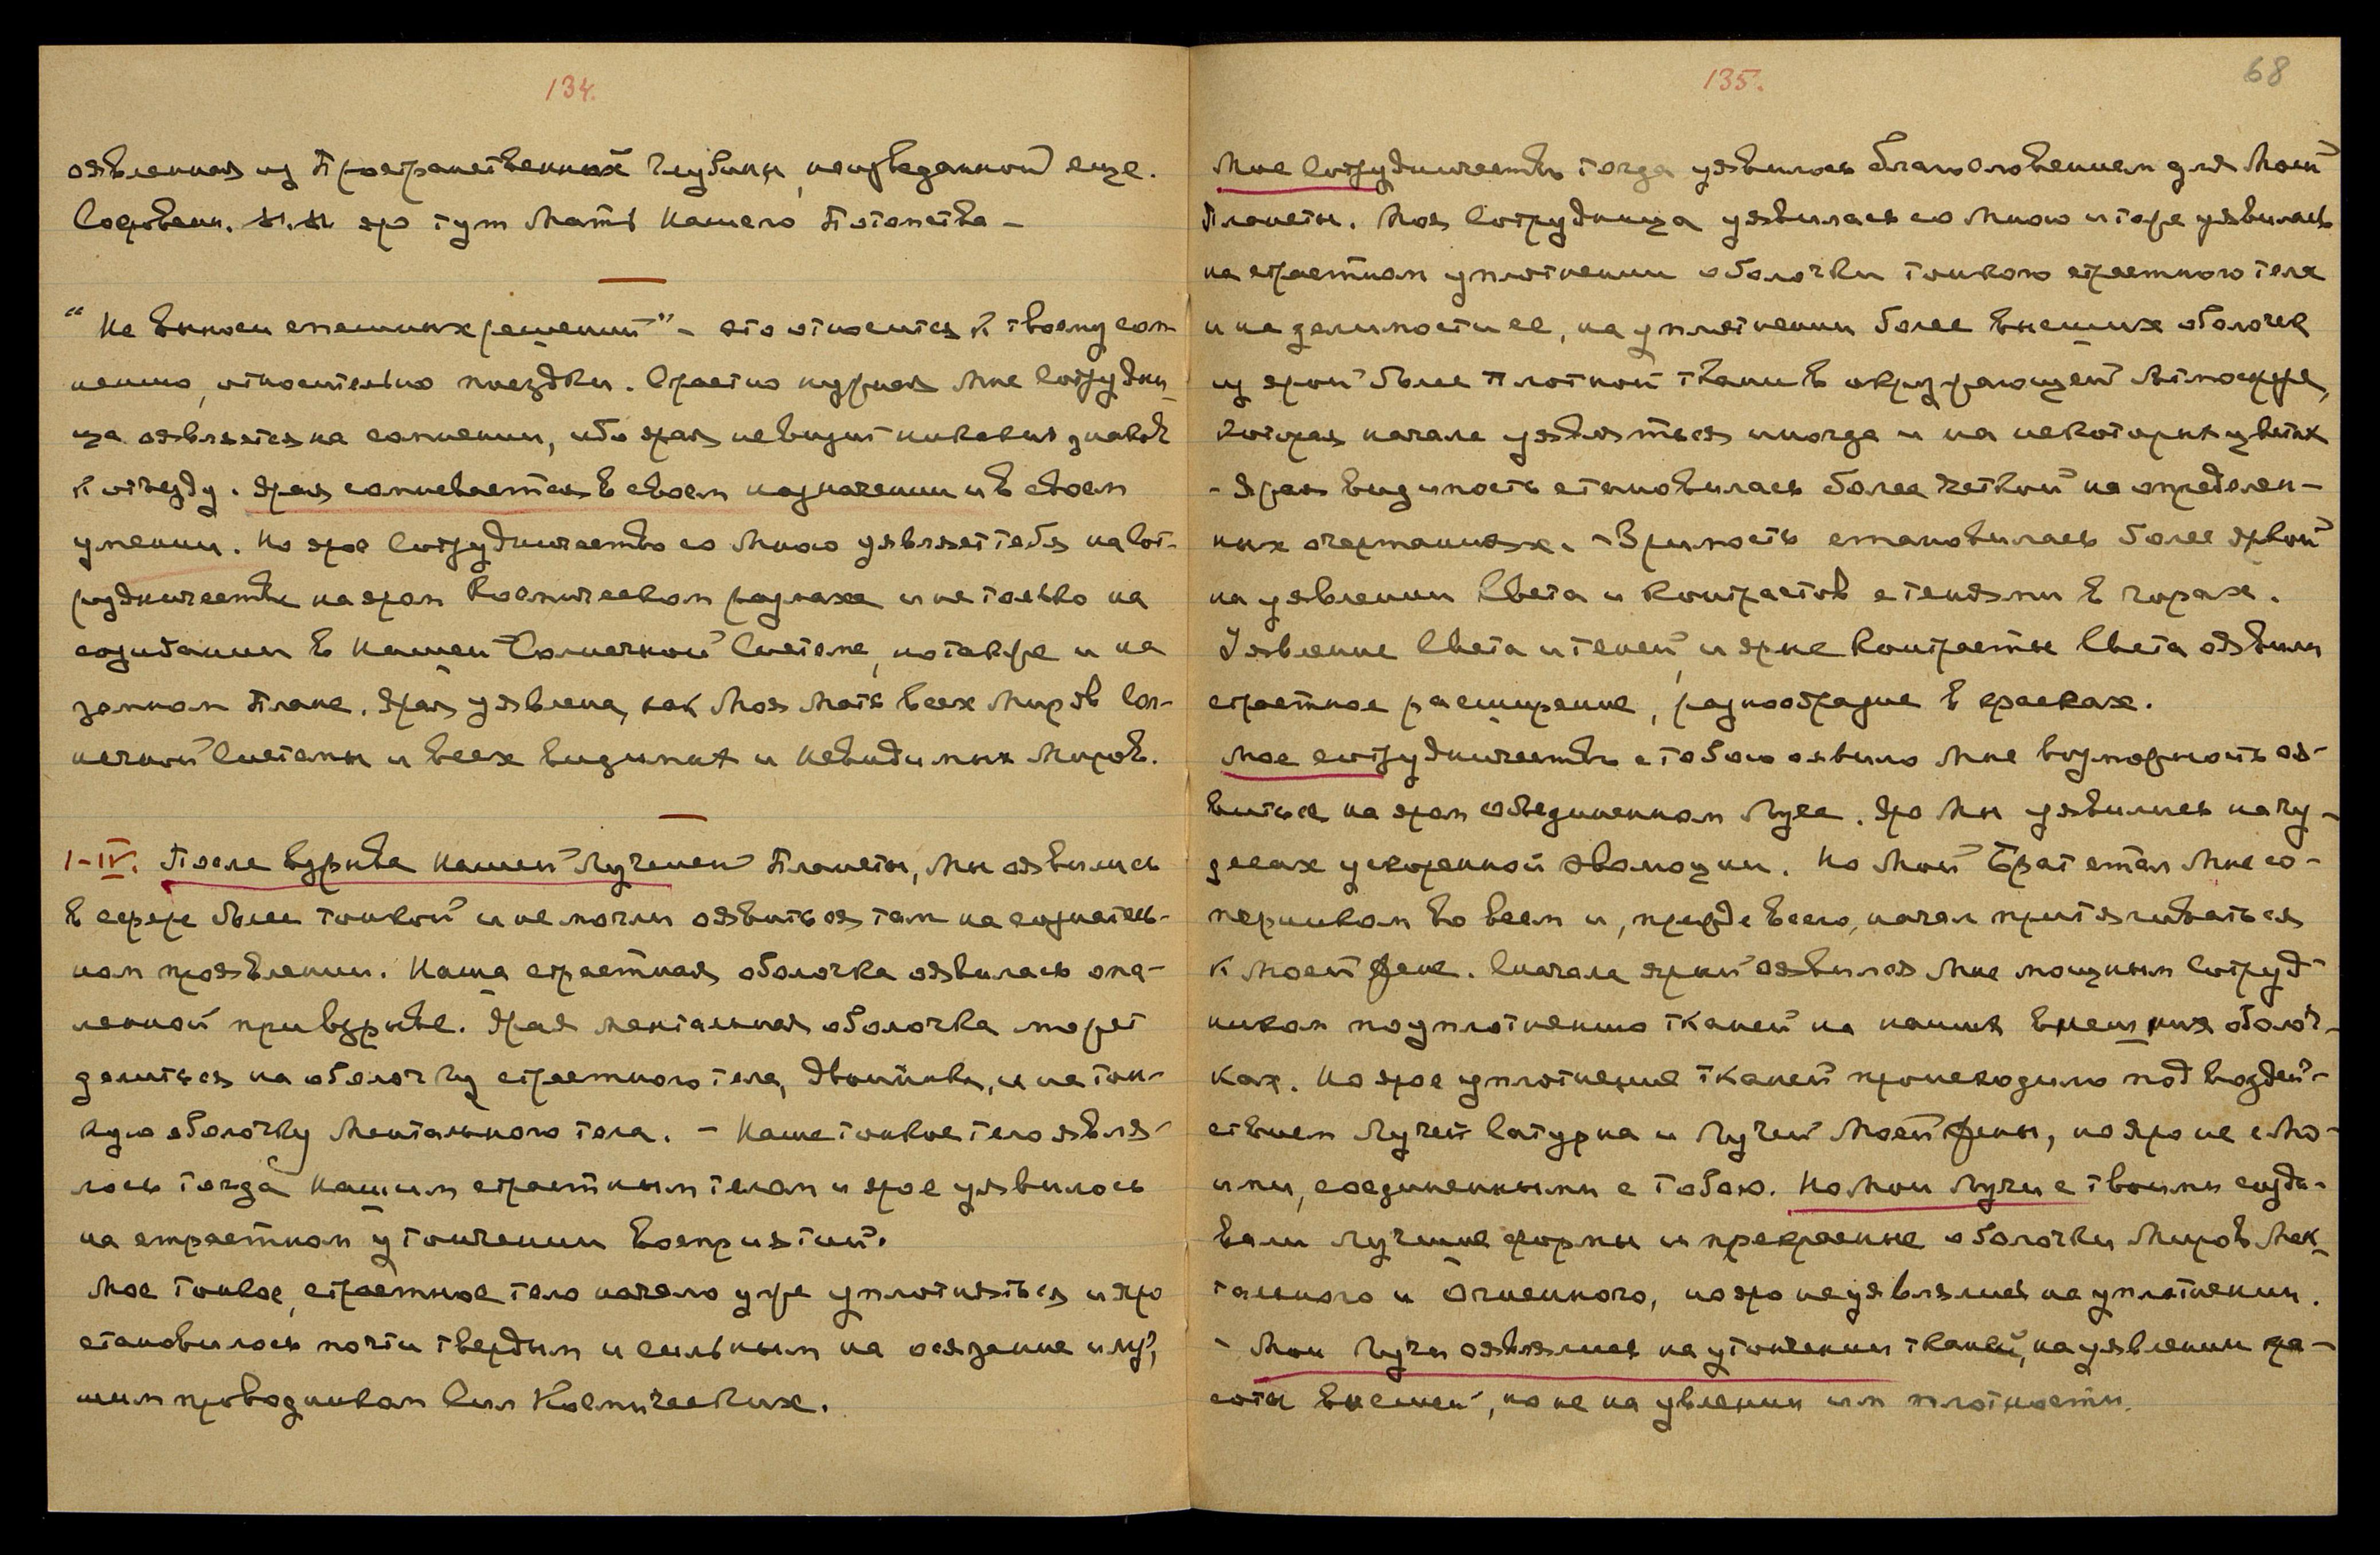 134.
оявленная из Пространственных глубин, неизведанной еще.
Сокровищ. яро тут Мать Нашего Потомства –
"Не выноси спешных решений" – это относится к твоему сом-
нению, относительно поездки. Страстно нужная Мне Сотрудни-
ца оявляется на сомнении, ибо ярая не видит никаких знаков
к отъезду. Ярая сомневается в своем назначении и в своем
умении. Но ярое Сотрудничество со Мною уявляет тебя на Сот-
рудничестве на яром Космическом размахе и не только на
созидании в Нашей Солнечной Системе, но также и на
земном плане. Ярая уявлена, как Моя Мать всех Миров Сол-
нечной Системы и всех видимых и невидимых Миров.
1-IV. После взрыва Нашей Лучшей Планеты, Мы оявились
в сфере более тонкой и не могли оявиться там на сознатель-
ном проявлении. Наша страстная оболочка оявилась опа-
ленной при взрыве. Ярая ментальная оболочка может
делиться на оболочку страстного тела, двойника, и на тон-
кую оболочку Ментального тела. – Наше тонкое тело явля-
лось тогда Нашим страстным телом и ярое уявилось
на страстном утончении восприятий.
Мое тонкое, страстное тело начало уже уплотняться и яро
становилось почти твердым и сильным на осязание и луч-
шим проводником Сил Космических.
135.
68
Мое Сотрудничество тогда уявилось благословением для Моей
Планеты. Моя Сотрудница уявилась со Мною и тоже уявилась
на страстном уплотнении оболочки тонкого страстного тела
и на делимости ее, на уплотнении более внешних оболочек
из ярой более плотной ткани в окружающей Атмосфере,
которая начала уявляться иногда и на некоторых цветах
– Ярая видимость становилась более четкой на определен-
ных очертаниях. – Зримость становилась более яркой
на уявлении Света и контрастов с тенями в горах.
Уявление Света и теней, и яркие контрасты Света оявили
страстное расширение, разнообразие в красках.
Мое сотрудничество с тобою оявило Мне возможность оя-
виться на яром объединенном Луче. Яро Мы уявились на чу-
десах ускоренной эволюции. Но Мой Брат стал Мне со-
перником во всем и, прежде всего, начал притягиваться
к Моей Жене. Сначала ярый оявился Мне мощным Сотруд-
ником по уплотнению тканей на наших внешних оболоч-
ках. Но ярое уплотнение тканей происходило под воздей-
ствием Лучей Сатурна и Лучей Моей Жены, но яро не с Мо-
ими, соединенными с тобою. Но Мои Лучи с твоими созда-
вали лучшие формы и прекрасные оболочки Миров Мен-
тального и Огненного, но яро не уявлялись на уплотнении.
– Мои Лучи оявлялись на утончении тканей, на уявлении кра-
соты внешней, но не на уявлении им плотности.